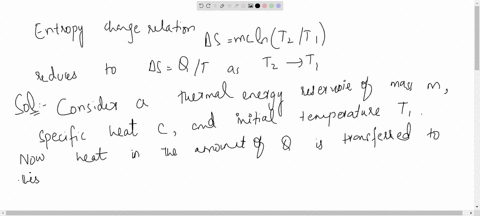 Entropy change relation ΔS = mc ln (T₂/T₁)
reduces to ΔS = Q/T as T₂ → T₁
Sol:- Consider a thermal energy reservoir of mass m,
specific heat c, and initial temperature T₁.
Now heat in the amount of Q is transferred to